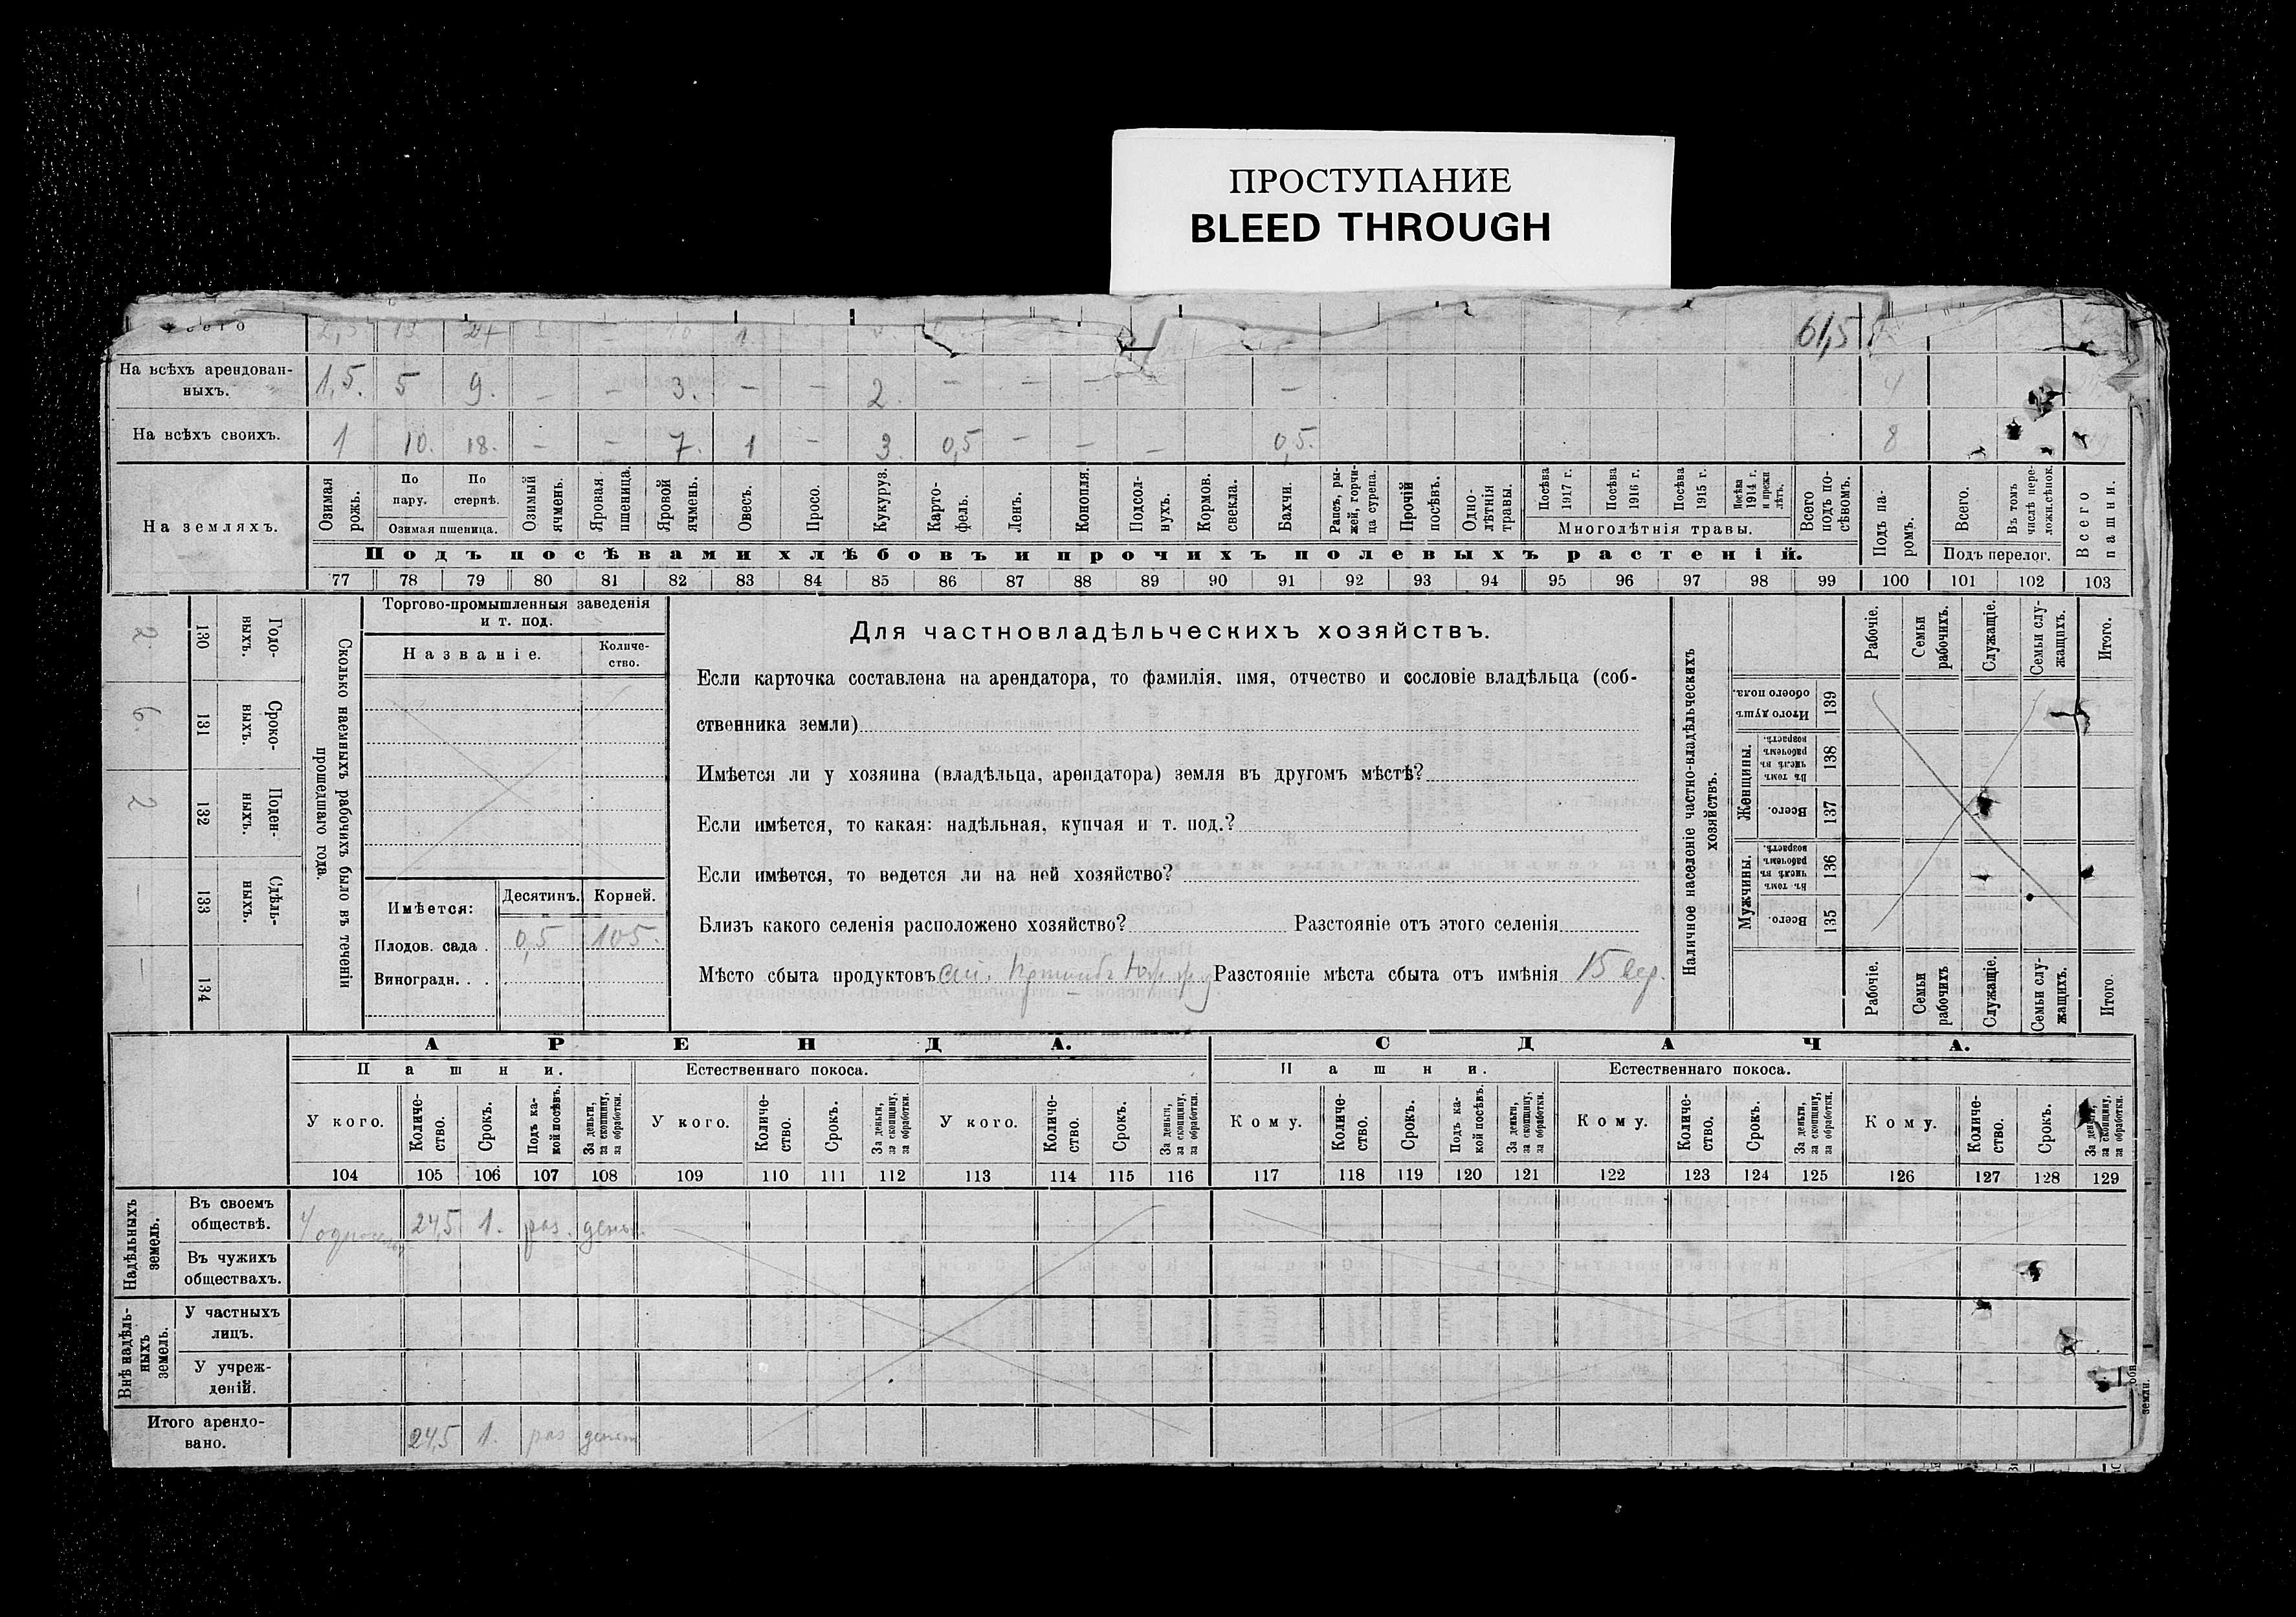 ПРОСТУПАНИЕ
BLEED THROUGH
61,5
На всѣхъ арендован-
ныхъ.
1,5. 5 9. – – 3. – – 2. – – – – 4
На всѣхъ своихъ.
1 10. 18. – – 7. 1 – 3. 0,5 – – – 0,5. 8
На земляхъ.
Озимая рожь.
По пару.
По стернѣ.
Озимая пшеница.
Озимый ячмень.
Яровая пшеница.
Яровой ячмень.
Овесъ.
Просо.
Кукуруз.
Карто-
фель.
Ленъ.
Конопля.
Подсол-
нухъ.
Кормов. свекла.
Бахчи.
Рапсъ, ры-
жей, горчи-
ца сурепа.
Прочій посѣвъ.
Одно-
лѣтнія травы.
Посѣва 1917 г.
Посѣва 1916 г.
Посѣва 1915 г.
Посѣва 1914 г. и прежн лѣтъ.
Многолѣтнія травы.
Всего подъ по-
сѣвомъ.
Подъ па-
ромъ.
Всего.
Въ томъ числѣ пере-
ложн.сѣнок.
Подъ перелог.
Всего пашни.
Подъ посѣвами хлѣбовъ и прочихъ полевыхъ растеній.
77 78 79 80 81 82 83 84 85 86 87 88 89 90 91 92 93 94 95 96 97 98 99 100 101 102 103
2 130 Годо-
ныхъ.
6. 131 Сроко-
ныхъ.
2 132 Поден-
ныхъ.
– 133 Сдѣль-
ныхъ.
– 134
Сколько наемныхъ рабочихъ было въ теченіи
прошедшаго года.
Торгово-промышленныя заведенія
и т. под.
Названіе.
Количе-
ство.
Имѣется:
Десятинъ.
Корней.
Плодов. сада . 0,5 105.
Виноградн. . .
Для частновладѣльческихъ хозяйствъ.
Если карточка составлена на арендатора, то фамилія, имя, отчество и сословіе владѣльца (соб-
ственника земли)
Имѣется ли у хозяина (владѣльца, арендатора) земля въ другомъ мѣстѣ?
Если имѣется, то какая: надѣльная, купчая и т. под.?
Если имѣется, то ведется ли на ней хозяйство?
Близъ какого селенія расположено хозяйство? Разстояніе отъ этого селенія
Мѣсто сбыта продуктовъ Разстояніе мѣста сбыта отъ имѣнія 15 вер.
Наличное населеніе частно-владѣльческихъ
хозяйствъ.
Рабочіе.
Семьи рабочихъ.
Служащіе.
Семьи слу-
жащихъ.
Итого.
Итого душъ обоего пола. 139
Женщины.
Въ томъ числѣ въ рабочемъ возрастѣ. 138
Всего. 137
Мужчины.
Въ томъ числѣ въ рабочемъ возрастѣ. 136
Всего. 135
Рабочіе.
Семьи рабочихъ
Служащіе.
Семьи слу-
жащихъ.
Итого
АРЕНДА.
СДАЧА.
Пашни.
Естественнаго покоса.
Пашни.
Естественнаго покоса.
У кого.
Количе-
ство.
Срокъ.
Подъ ка-
кой посѣвъ.
За деньги, за скопщину, за обработки.
У кого.
Количе-
ство.
Срокъ.
За деньги, за скопщину, за обработки.
У кого.
Количе-
ство.
Срокъ.
За деньги, за скопщину, за обработки.
Кому.
Количе-
ство.
Срокъ.
Подъ ка-
кой посѣвъ.
За деньги, за скопщину, за обработки.
Кому.
Количе-
ство.
Срокъ.
За деньги, за скопщину, за обработки.
Кому.
Количе-
ство.
Срокъ.
За деньги, за скопщину, за обработки.
104 105 106 107 108 109 110 111 112 113 114 115 116 117 118 119 120 121 122 123 124 125 126 127 128 129
Надѣльныхъ
земель.
Въ своемъ
обществѣ.
24,5 1. раз. день
Въ чужихъ
обществахъ.
Внѣ надѣль-
ныхъ
земель.
У частныхъ
лицъ.
У учреж-
деній.
Итого арендо-
вано.
24,5 1. раз
земли.